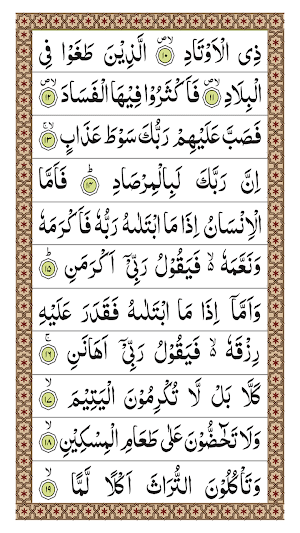 ذِی الۡاَوۡتَادِ ۪ۙۙ‏ ﴿۱۰﴾ الَّذِیۡنَ طَغَوۡا فِی
الۡبِلَادِ ۪ۙۙ‏ ﴿۱۱﴾ فَاَکۡثَرُوۡا فِیۡهَا الۡفَسَادَ ۪ۙۙ‏ ﴿۱۲﴾
فَصَبَّ عَلَیۡهِمۡ رَبُّكَ سَوۡطَ عَذَابٍ ۚۙ‏ ﴿۱۳﴾
اِنَّ رَبَّكَ لَبِالۡمِرۡصَادِ ؕ‏ ﴿۱۴﴾ فَاَمَّا
الۡاِنۡسَانُ اِذَا مَا ابۡتَلٰىهُ رَبُّهٗ فَاَکۡرَمَهٗ
وَنَعَّمَهٗ ۙ فَیَقُوۡلُ رَبِّیۡۤ اَکۡرَمَنِ ؕ‏ ﴿۱۵﴾
وَاَمَّاۤ اِذَا مَا ابۡتَلٰىهُ فَقَدَرَ عَلَیۡهِ
رِزۡقَهٗ ۙ فَیَقُوۡلُ رَبِّیۡۤ اَهَانَنِ ۚ‏ ﴿۱۶﴾
کَلَّا بَلۡ لَّا تُکۡرِمُوۡنَ الۡیَتِیۡمَ ۙ‏ ﴿۱۷﴾
وَلَا تَحٰٓضُّوۡنَ عَلٰی طَعَامِ الۡمِسۡکِیۡنِ ۙ‏ ﴿۱۸﴾
وَتَاۡکُلُوۡنَ التُّرَاثَ اَکۡلًا لَّمًّا ۙ‏ ﴿۱۹﴾